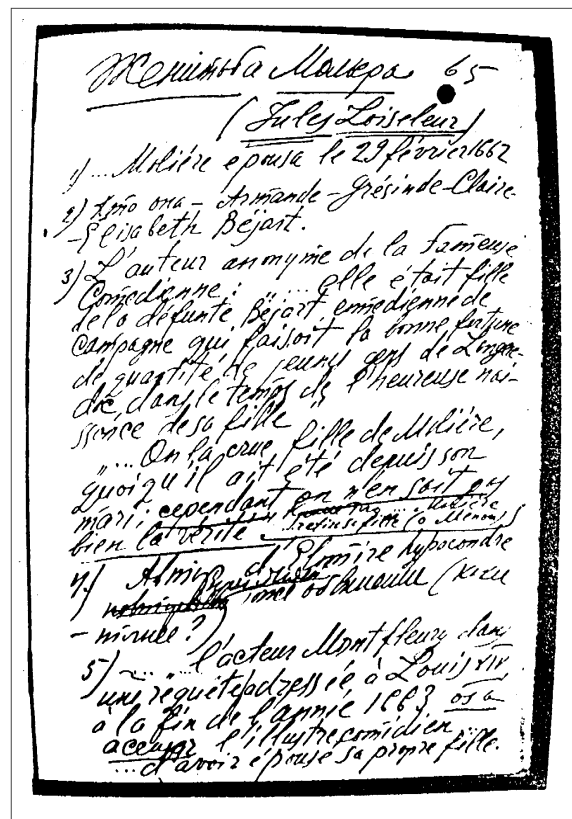 Женитьба Мольера 65
(Jules Loiseleur)
1) ... Molière epousa le 29 février 1662
2) Кто она – Armande-Grésinde-Claire-
-Elisabeth Béjart.
3) L'auteur anonyme de la Fameuse
Comedienne: "... elle était fille
de la défunte Béjart comedienne de
campagne qui faisoit la bonne fortune
de quantité de jeunes gens de Langue-
doc dans le temps de l'heureuse nai-
ssance de sa fille"
"... On la crue fille de Molière,
quoi qu'il ait été depuis son
mari; cependant on n'en sait pas
bien la vérité
4) d'Elomire hypocondre
5) ... l'acteur Montfleury dans
une requête adressée à Louis XIV
à la fin de l'année 1663 osa
accuser l'illustre comédien
... d'avoir épousé sa propre fille.